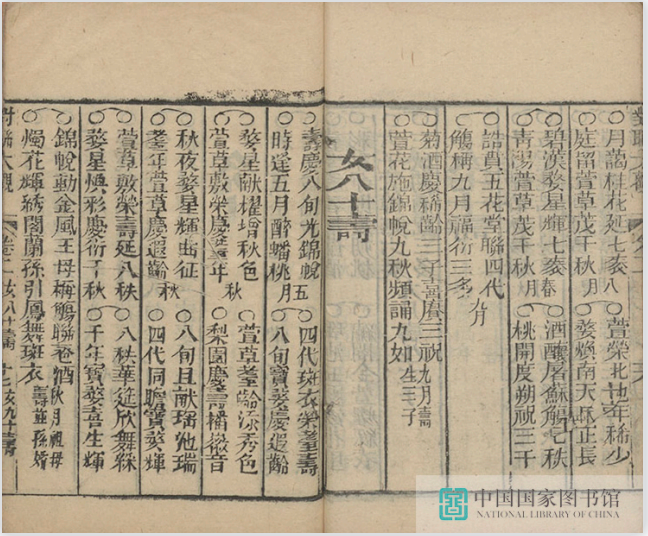 月萵桂花延七袠 八月
萱榮北地年稀少
庭留萱草茂千秋
婺煥南天日正長
碧漢婺星輝七袠 春
酒釀屠蘇觴七秩
青澱萱草茂千秋 月
桃開度朔祝三千
誥貢五花堂聯四代
觴稱九月福衍三多 九月
菊酒慶稀齡三子喜賡三祝 九月壽
萱花施錦帨九秋頻誦九如 生三子
女八十壽
壽慶八旬光錦帨
四代斑衣榮耋壽
時逢五月醉蟠桃 五月
八旬寶婺慶遐齡
婺星献耀增秋色
萱草耋齡添秀色
萱草敷榮慶耋年 秋
梨園慶壽播徽音
秋夜婺星輝出征
八旬且献瑶池瑞
耋年萱草慶遐齡 秋
四代同瞻寶婺輝
萱草敷榮壽延八秩
八秩華筵欣舞綵
婺星煥彩慶衍千秋
千年寶婺喜生輝
錦帨動金風王母梅觴聯巹酒 秋月祖母
燭花輝綉閣蘭孫引鳳舞斑衣 壽並孫婚
對聯大觀
卷二 女八十壽 十七 女九十壽
中国国家图书馆
NATIONAL LIBRARY OF CHINA